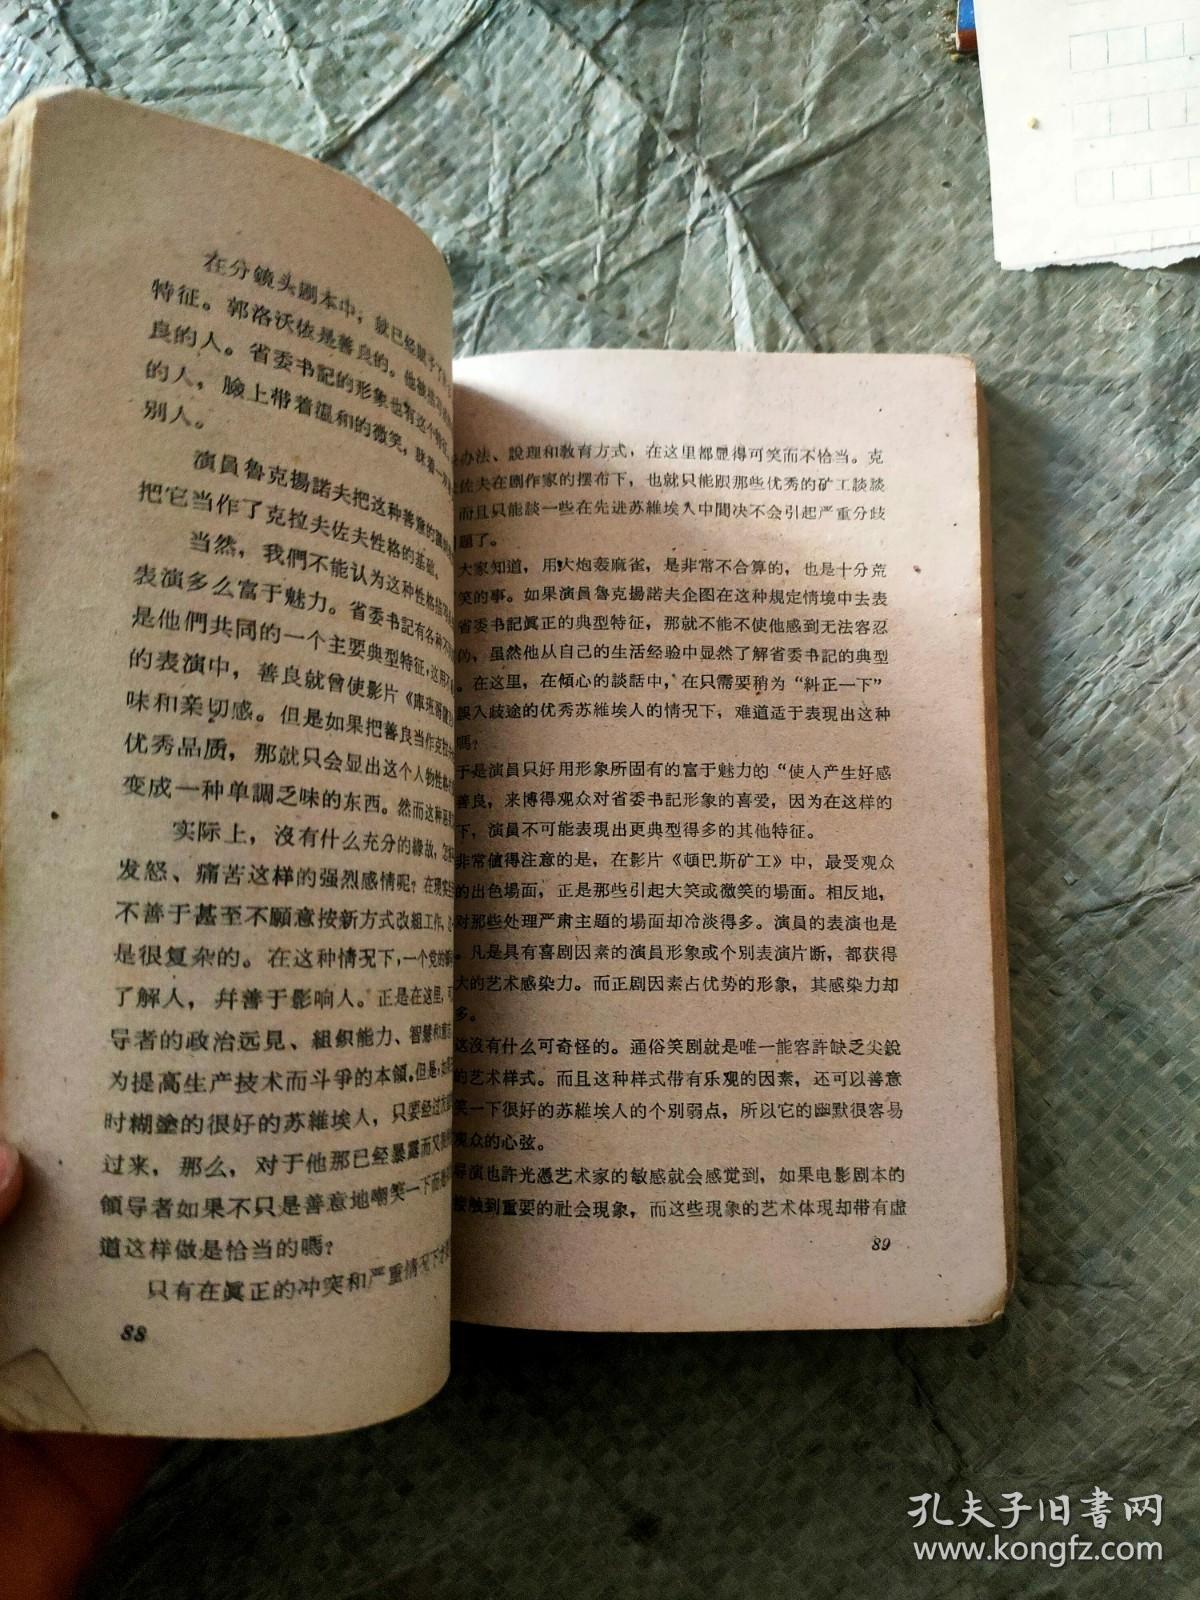 在分鏡头剧本中，就已经賦予了
特征。郭洛沃依是善良的。他被描写
良的人。省委书記的形象也有这个特
的人，臉上带着温和的微笑，眯着一
別人。
演員魯克揚諾夫把这种善意的
把它当作了克拉夫佐夫性格的基础。
当然，我們不能认为这种性格
表演多么富于魅力。省委书記有各种不
是他們共同的一个主要典型特征，这用
的表演中，善良就曾使影片《庫班
味和亲切感。但是如果把善良当作克拉
优秀品质，那就只会显出这个人物性格
变成一种单調乏味的东西。然而这种
实际上，沒有什么充分的緣故，怎
发怒、痛苦这样的强烈感情呢？在现实
不善于甚至不願意按新方式改組工作，
是很复杂的。在这种情况下，一个党的
了解人，幷善于影响人。正是在这里，可
导者的政治远見、組織能力、智慧和
为提高生产技术而斗爭的本領。但是，如
时糊塗的很好的苏維埃人，只要经过
过来，那么，对于他那已经暴露而又
領导者如果不只是善意地嘲笑一下而
道这样做是恰当的嗎？
只有在眞正的冲突和严重情况下才
88
办法、說理和敎育方式，在这里都显得可笑而不恰当。克
佐夫在剧作家的摆布下，也就只能跟那些优秀的矿工談談
而且只能談一些在先进苏維埃人中間决不会引起严重分歧
題了。
大家知道，用大炮轰麻雀，是非常不合算的，也是十分荒
笑的事。如果演員魯克揚諾夫企图在这种規定情境中去表
省委书記眞正的典型特征，那就不能不使他感到无法容忍
的，虽然他从自己的生活经驗中显然了解省委书記的典型
。在这里，在傾心的談話中，在只需要稍为“糾正一下”
誤入歧途的优秀苏維埃人的情况下，难道适于表現出这种
嗎？
于是演員只好用形象所固有的富于魅力的“使人产生好感
善良，来博得观众对省委书記形象的喜爱，因为在这样的
下，演員不可能表現出更典型得多的其他特征。
非常值得注意的是，在影片《頓巴斯矿工》中，最受观众
的出色場面，正是那些引起大笑或微笑的場面。相反地，
对那些处理严肃主題的場面却冷淡得多。演員的表演也是
。凡是具有喜剧因素的演員形象或个别表演片断，都获得
大的艺术感染力。而正剧因素占优势的形象，其感染力却
多。
这沒有什么可奇怪的。通俗笑剧就是唯一能容許缺乏尖銳
的艺术样式。而且这种样式带有乐观的因素，还可以善意
笑一下很好的苏維埃人的个別弱点，所以它的幽默很容易
观众的心弦。
导演也許光憑艺术家的敏感就会感觉到，如果电影剧本的
接触到重要的社会現象，而这些現象的艺术体現却带有虚
89
孔夫子旧书网
www.kongfz.com